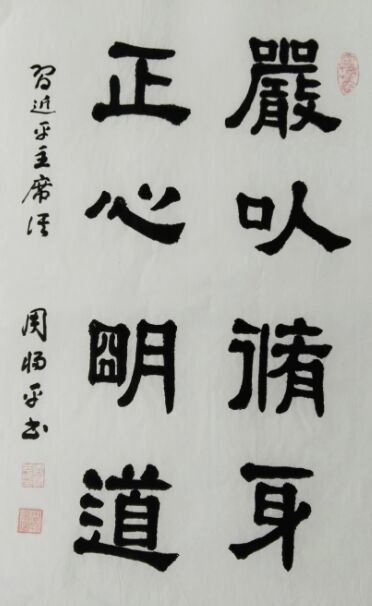 嚴以脩身
正心明道
習近平主席语
周 平书